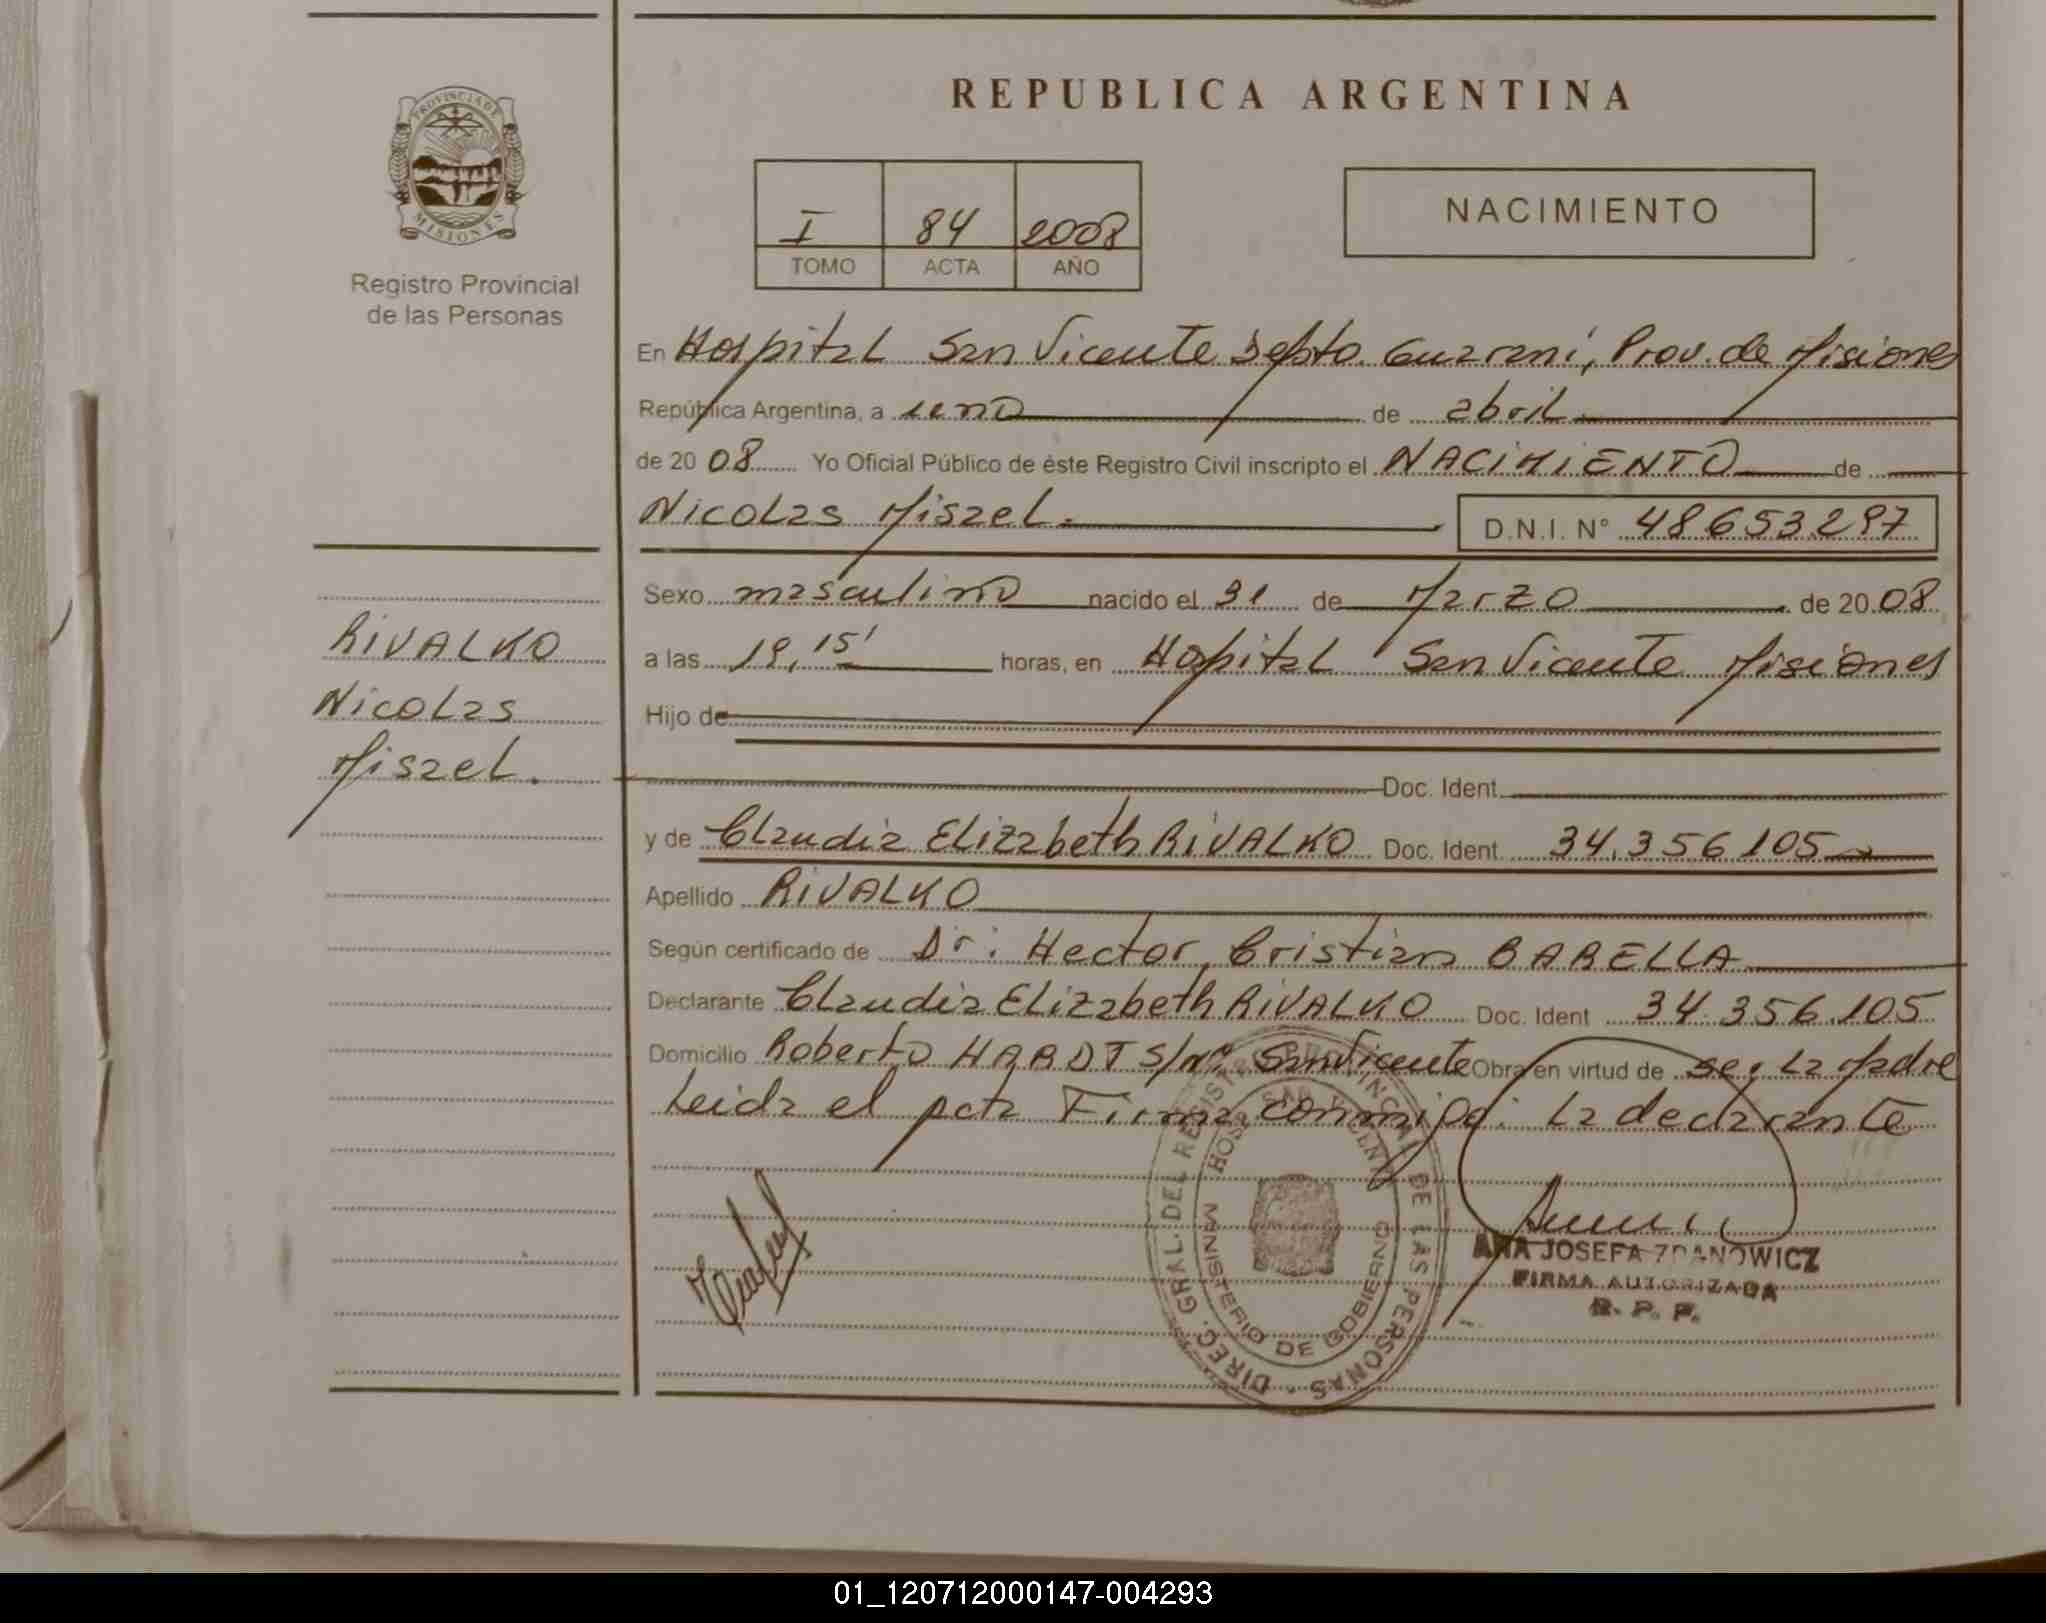 PROVINCIA DE
MISIONES
Registro Provincial
de las Personas
RIVALKO
Nicolas
Misael.
REPUBLICA ARGENTINA
I 84 2008
TOMO ACTA AÑO
NACIMIENTO
En Hospital San Vicente Depto. Guarani, Prov. de Misiones
República Argentina, a uno de abril
de 20 08 Yo Oficial Público de éste Registro Civil inscripto el NACIMIENTO de
Nicolas Misael. D.N.I. N° 48653.297
Sexo masculino nacido el 31 de Marzo de 20 08
a las 19,15' horas, en Hospital San Vicente Misiones
Hijo de
Doc. Ident.
y de Claudia Elizabeth RIVALKO Doc. Ident 34.356.105
Apellido RIVALKO
Según certificado de Dr: Hector Cristian BARELLA
Declarante Claudia Elizabeth RIVALKO Doc. Ident 34.356.105
Domicilio Roberto HARDT S/Nº San Vicente Obra en virtud de ser La Madre
Leida el acta Firma conmigo: La declarante
DIREC. GRAL. DEL REGISTRO PROVINCIAL DE LAS PERSONAS
HOSP. SAN VICENTE
MINISTERIO DE GOBIERNO
ANA JOSEFA ZDANOWICZ
FIRMA AUTORIZADA
R. P. P.
01_120712000147-004293